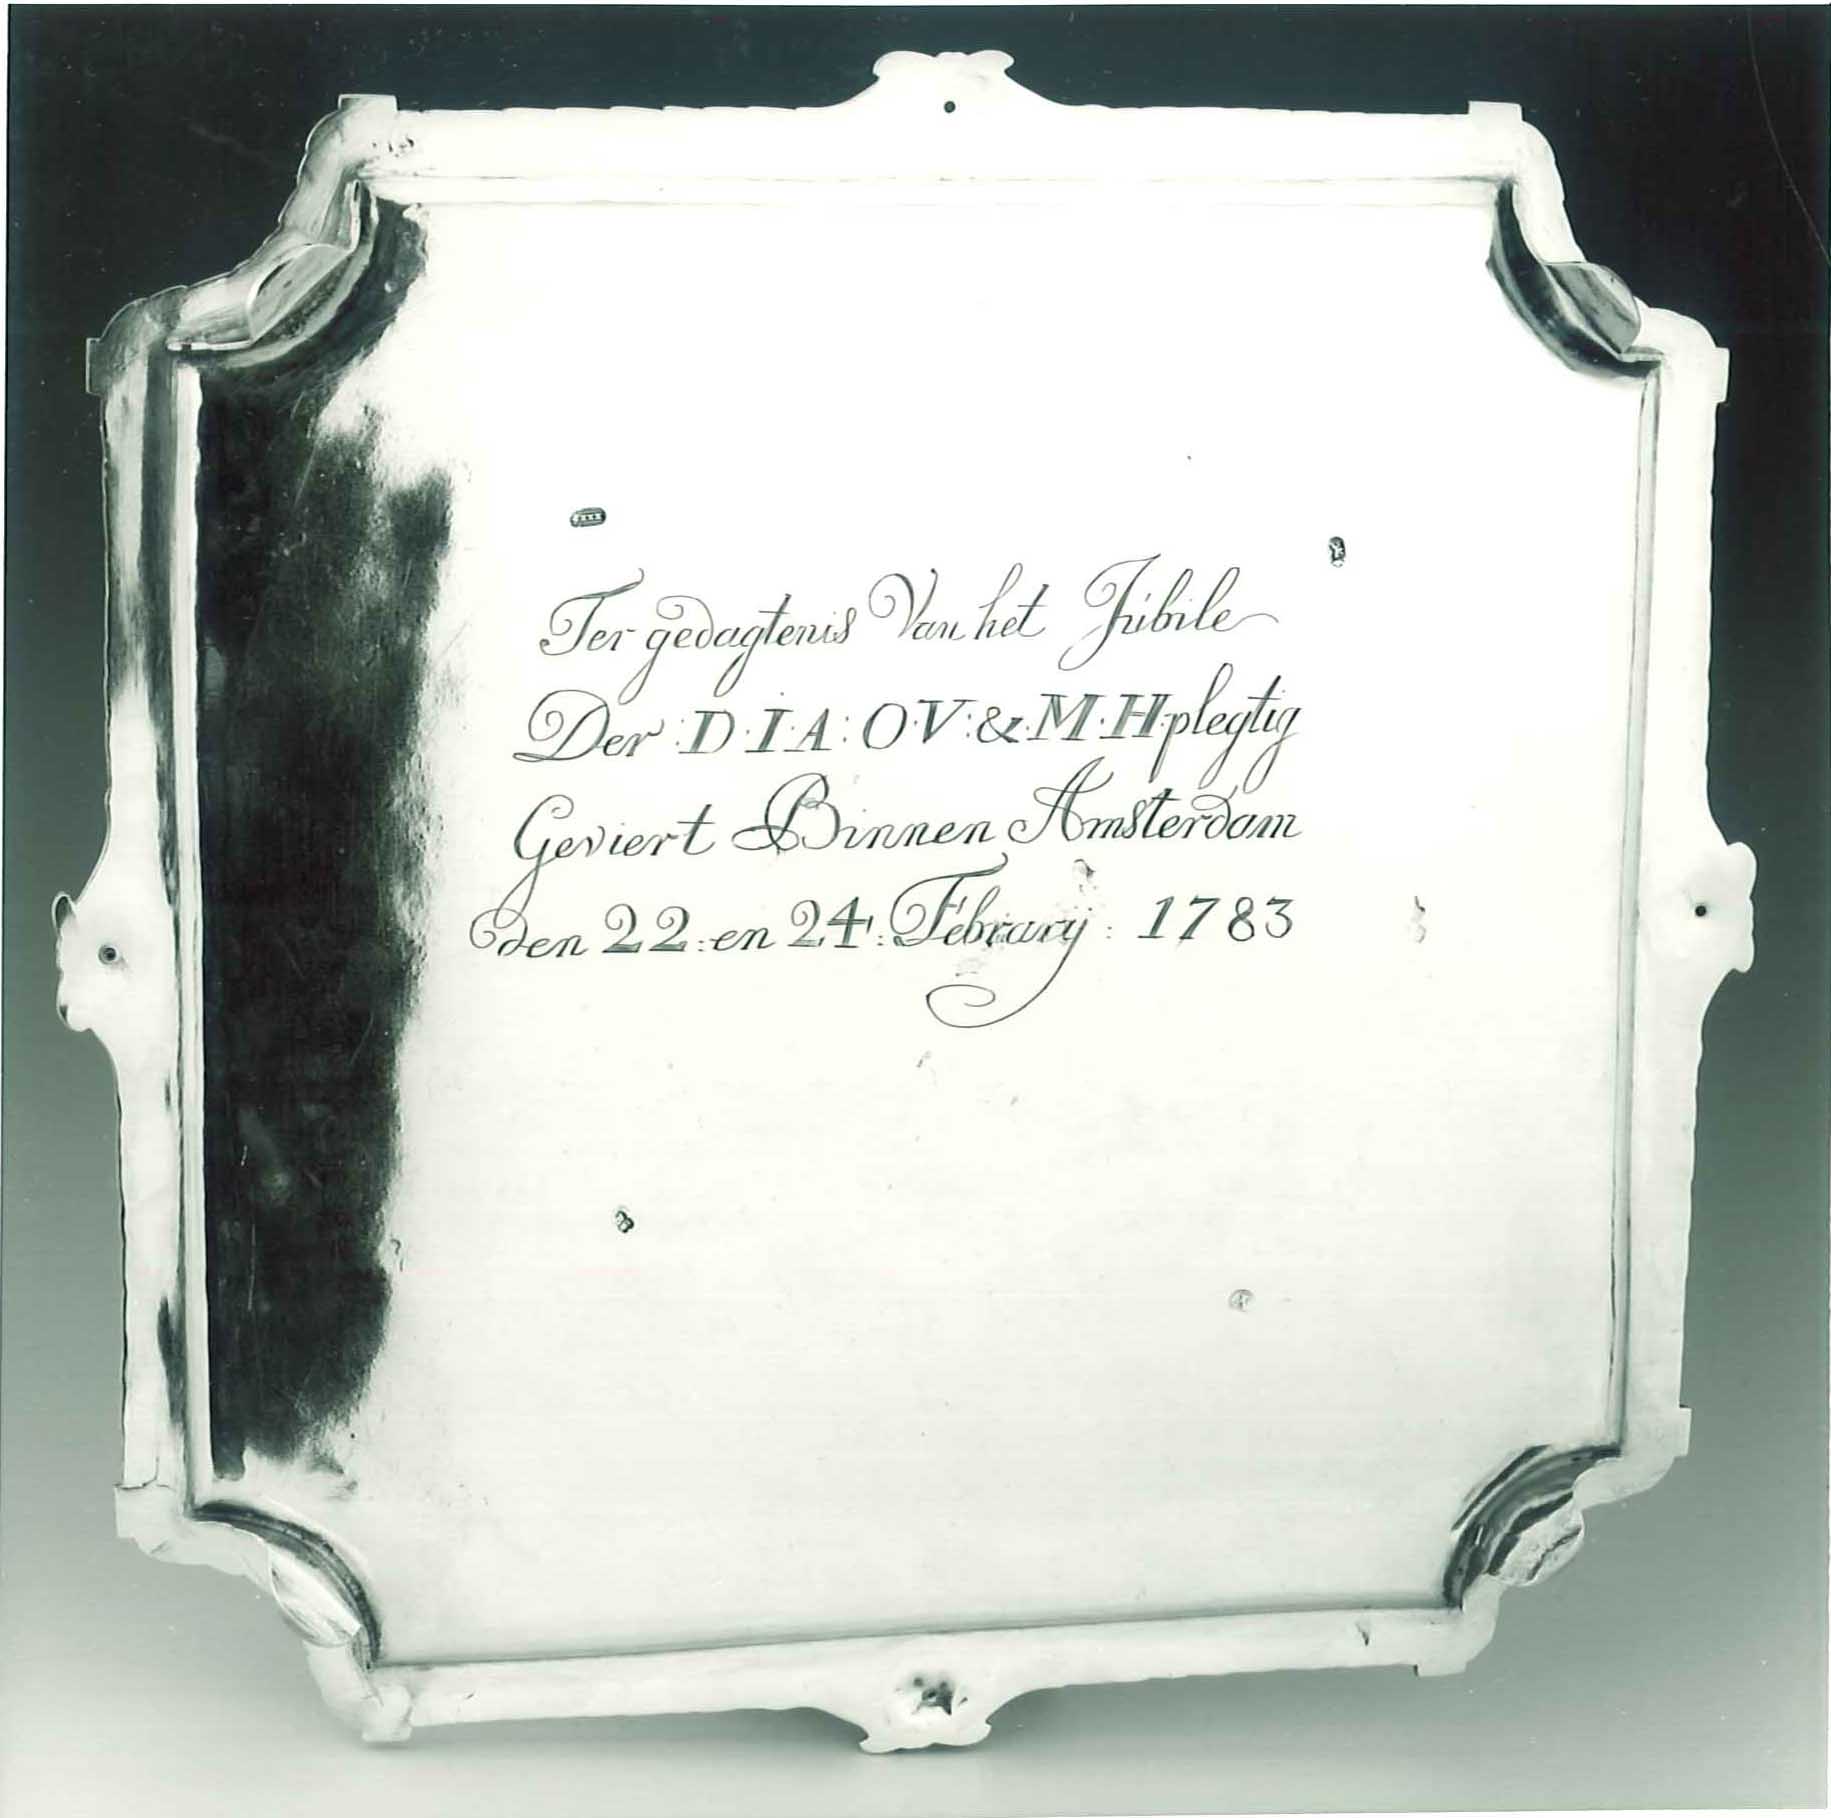 Ter gedagtenis Van het Jubile
Der :D·I·A: O·V: &: M·H: plegtig
Geviert Binnen Amsterdam
den 22: en 24: Februarij: 1783